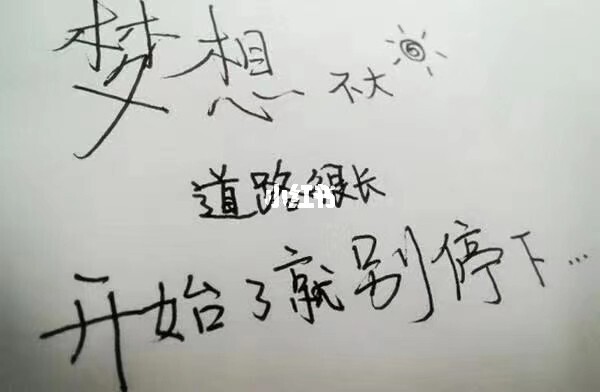 梦想 不大
道路很长
小红书
开始了就别停下...